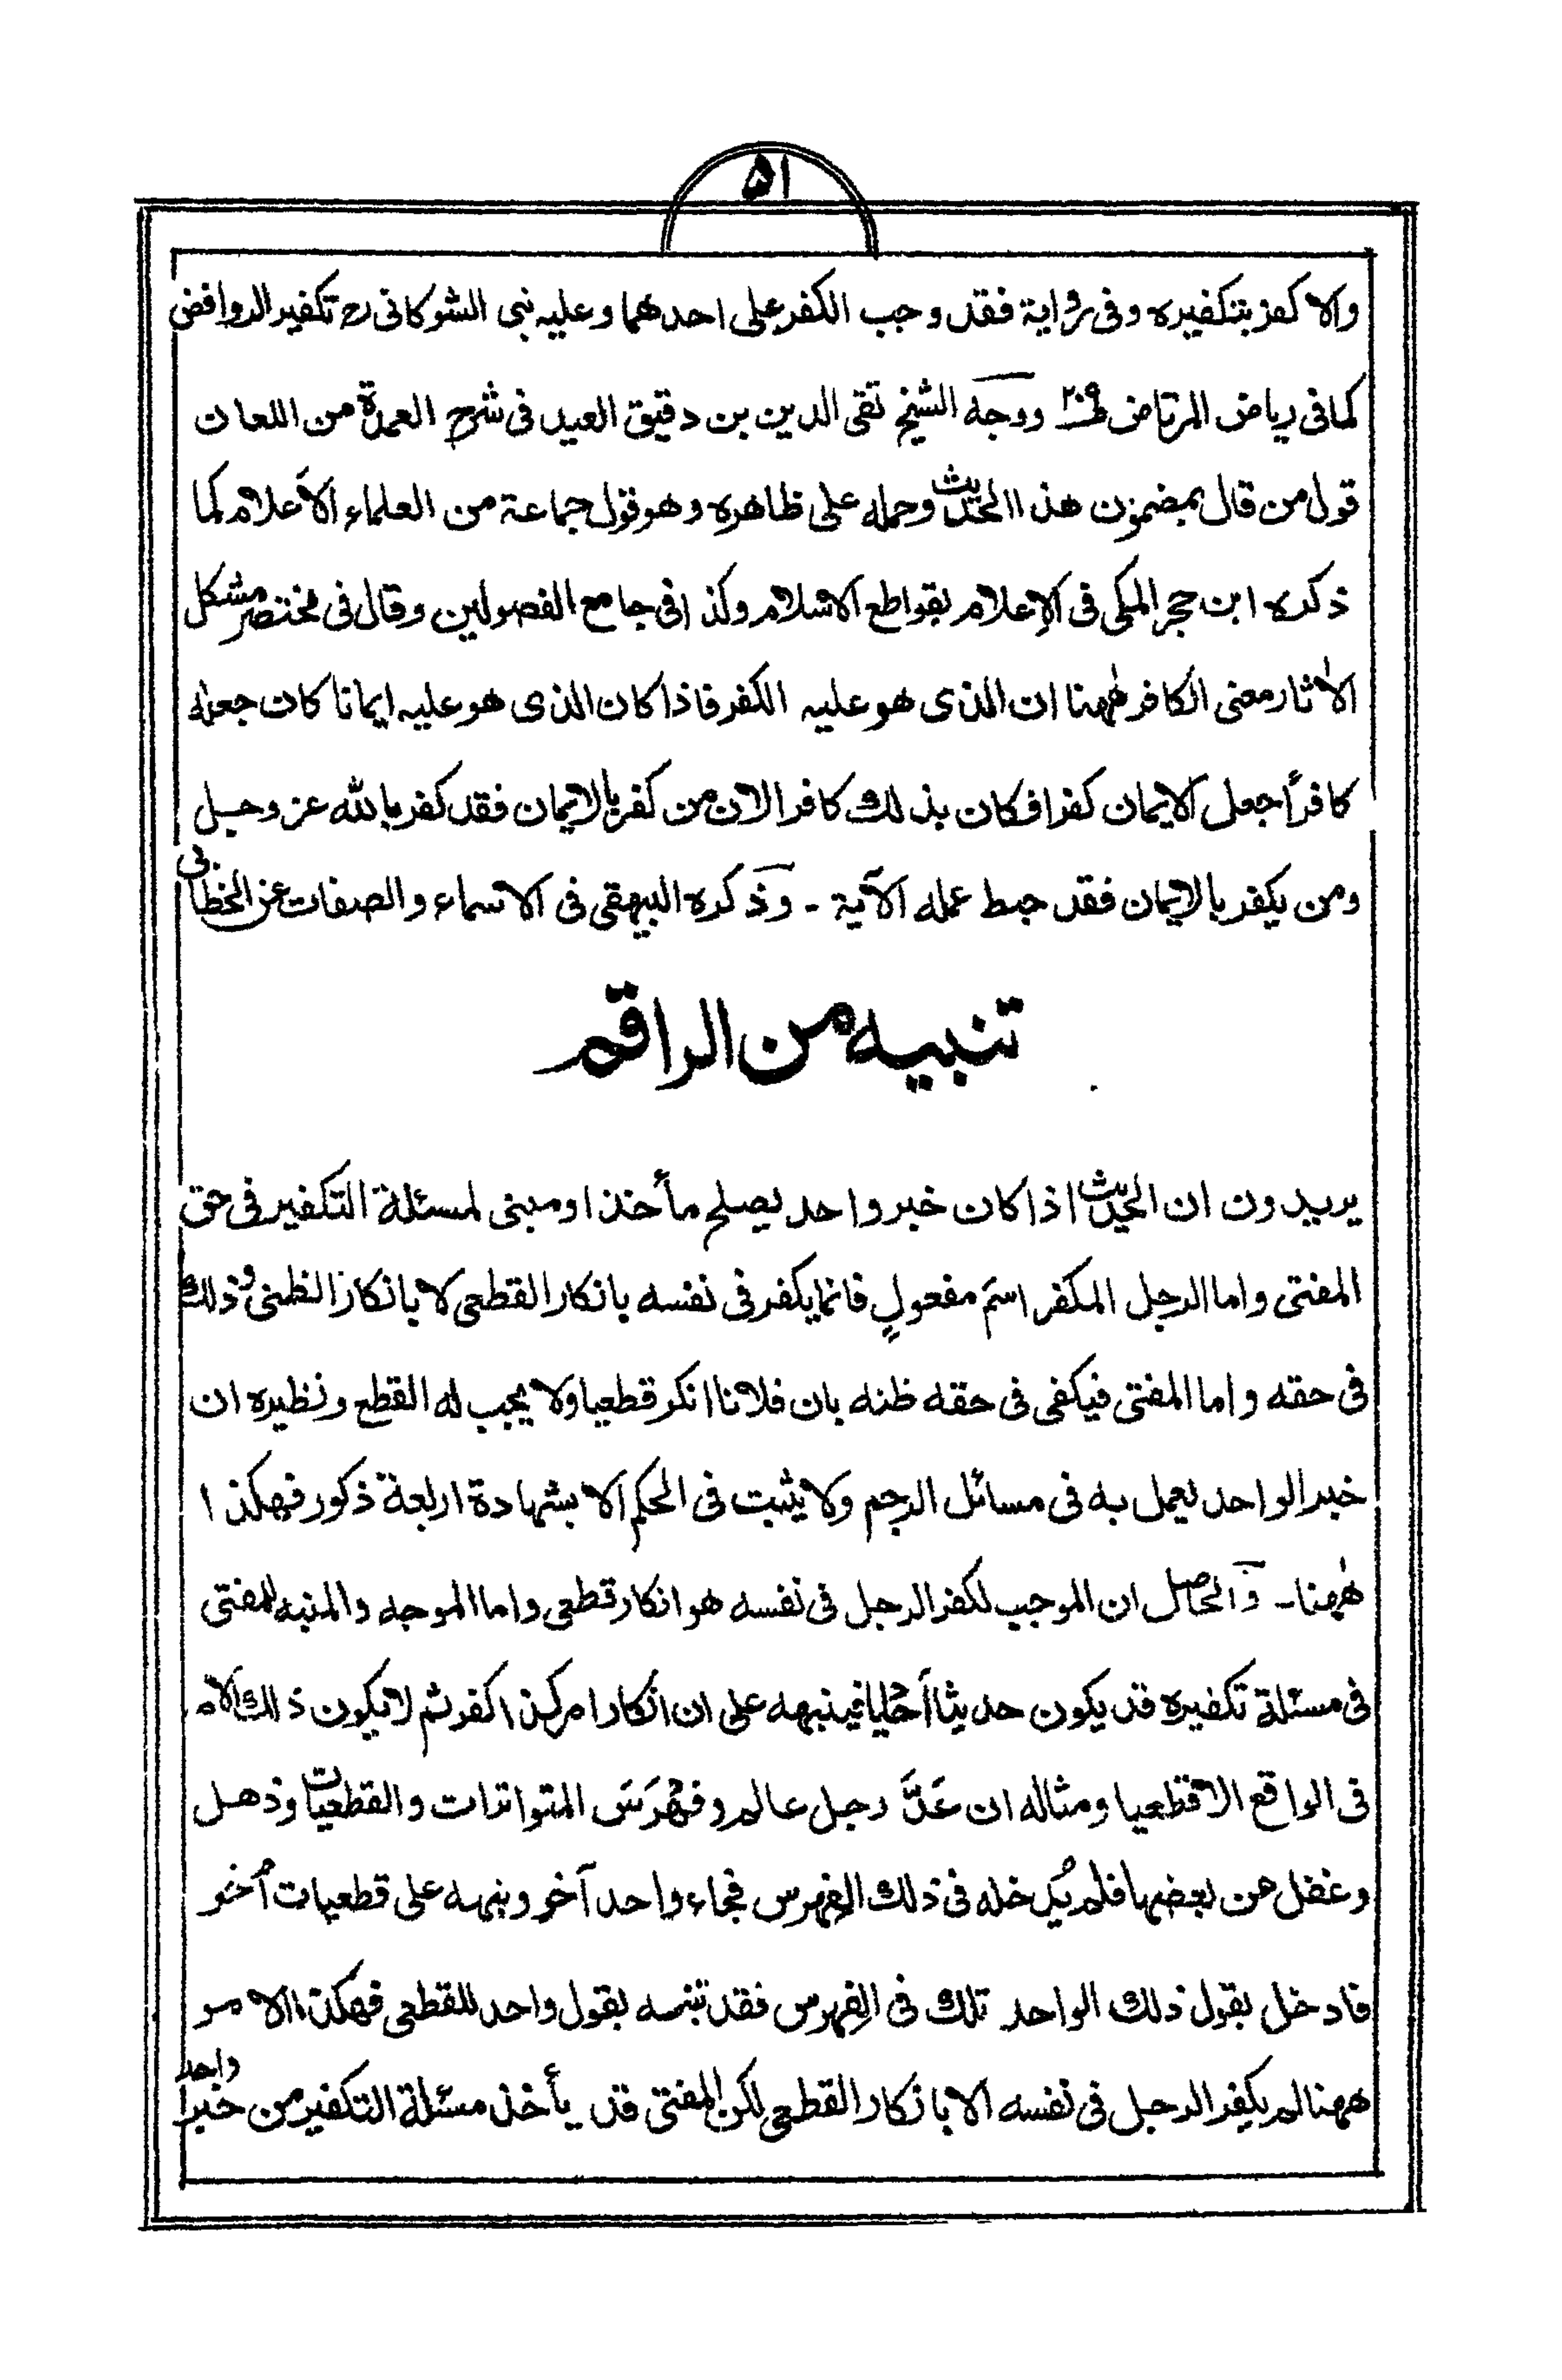 ۵۱
والا كفر بتكفيره وفى رواية فقد وجب الكفر على احدهما وعليه بنى الشوكانى رح تكفير الروافض
كما فى رياض المرتاض ص٢٠٩ ووجه الشيخ تقى الدين بن دقيق العيد فى شرح العمدة من اللعان
قول من قال بمضمون هذا الحديث وحمله على ظاهره وهو قول جماعة من العلماء الأعلام كما
ذكره ابن حجر المكى فى الإعلام بقواطع الاسلام وكذا فى جامع الفصولين وقال فى مختصر مشكل
الاٰثار معنى الكافر هٰهنا ان الذى هو عليه الكفر فاذا كان الذى هو عليه ايمانا كان جعله
كافراً جعل الايمان كفرا فكان بذلك كافرا لان من كفر بالايمان فقد كفر بالله عز وجل
ومن يكفر بالايمان فقد حبط عمله الآية - وذكره البيهقى فى الاسماء والصفات عن الخطابى
تنبيه من الراقم
يريدون ان الحديث اذا كان خبر واحد يصلح مأخذا ومبنى لمسئلة التكفير فى حق
المفتى واما الرجل المكفر اسمَ مفعولٍ فانما يكفر فى نفسه بانكار القطعى لا بانكار الظنى وذلك
فى حقه واما المفتى فيكفى فى حقه ظنه بان فلانا انكر قطعيا ولا يجب له القطع ونظيره ان
خبر الواحد يعمل به فى مسائل الرجم ولا يثبت فى الحكم الا بشهادة اربعة ذكور فهكذا
هٰهنا - والحاصل ان الموجب لكفر الرجل فى نفسه هو انكار قطعى واما الموجه والمنبه للمفتى
فى مسئلة تكفيره قد يكون حديثا أحديا فينبهه على ان انكار امر كذا كفر ثم لا يكون ذلك الامر
فى الواقع الا قطعيا ومثاله ان عَدَّ رجل عالم وفَهْرَسَ المتواترات والقطعيات وذهل
وغفل عن بعضها فلم يُدخله فى ذلك الفهرس فجاء واحد آخر ونبهه على قطعيات أُخر
فادخل بقول ذلك الواحد تلك فى الفهرس فقد تنبه بقول واحد للقطعى فهكذا الامر
ههنا لم يكفر الرجل فى نفسه الا بانكار القطعى لكن المفتى قد يأخذ مسئلة التكفير من خبر واحد